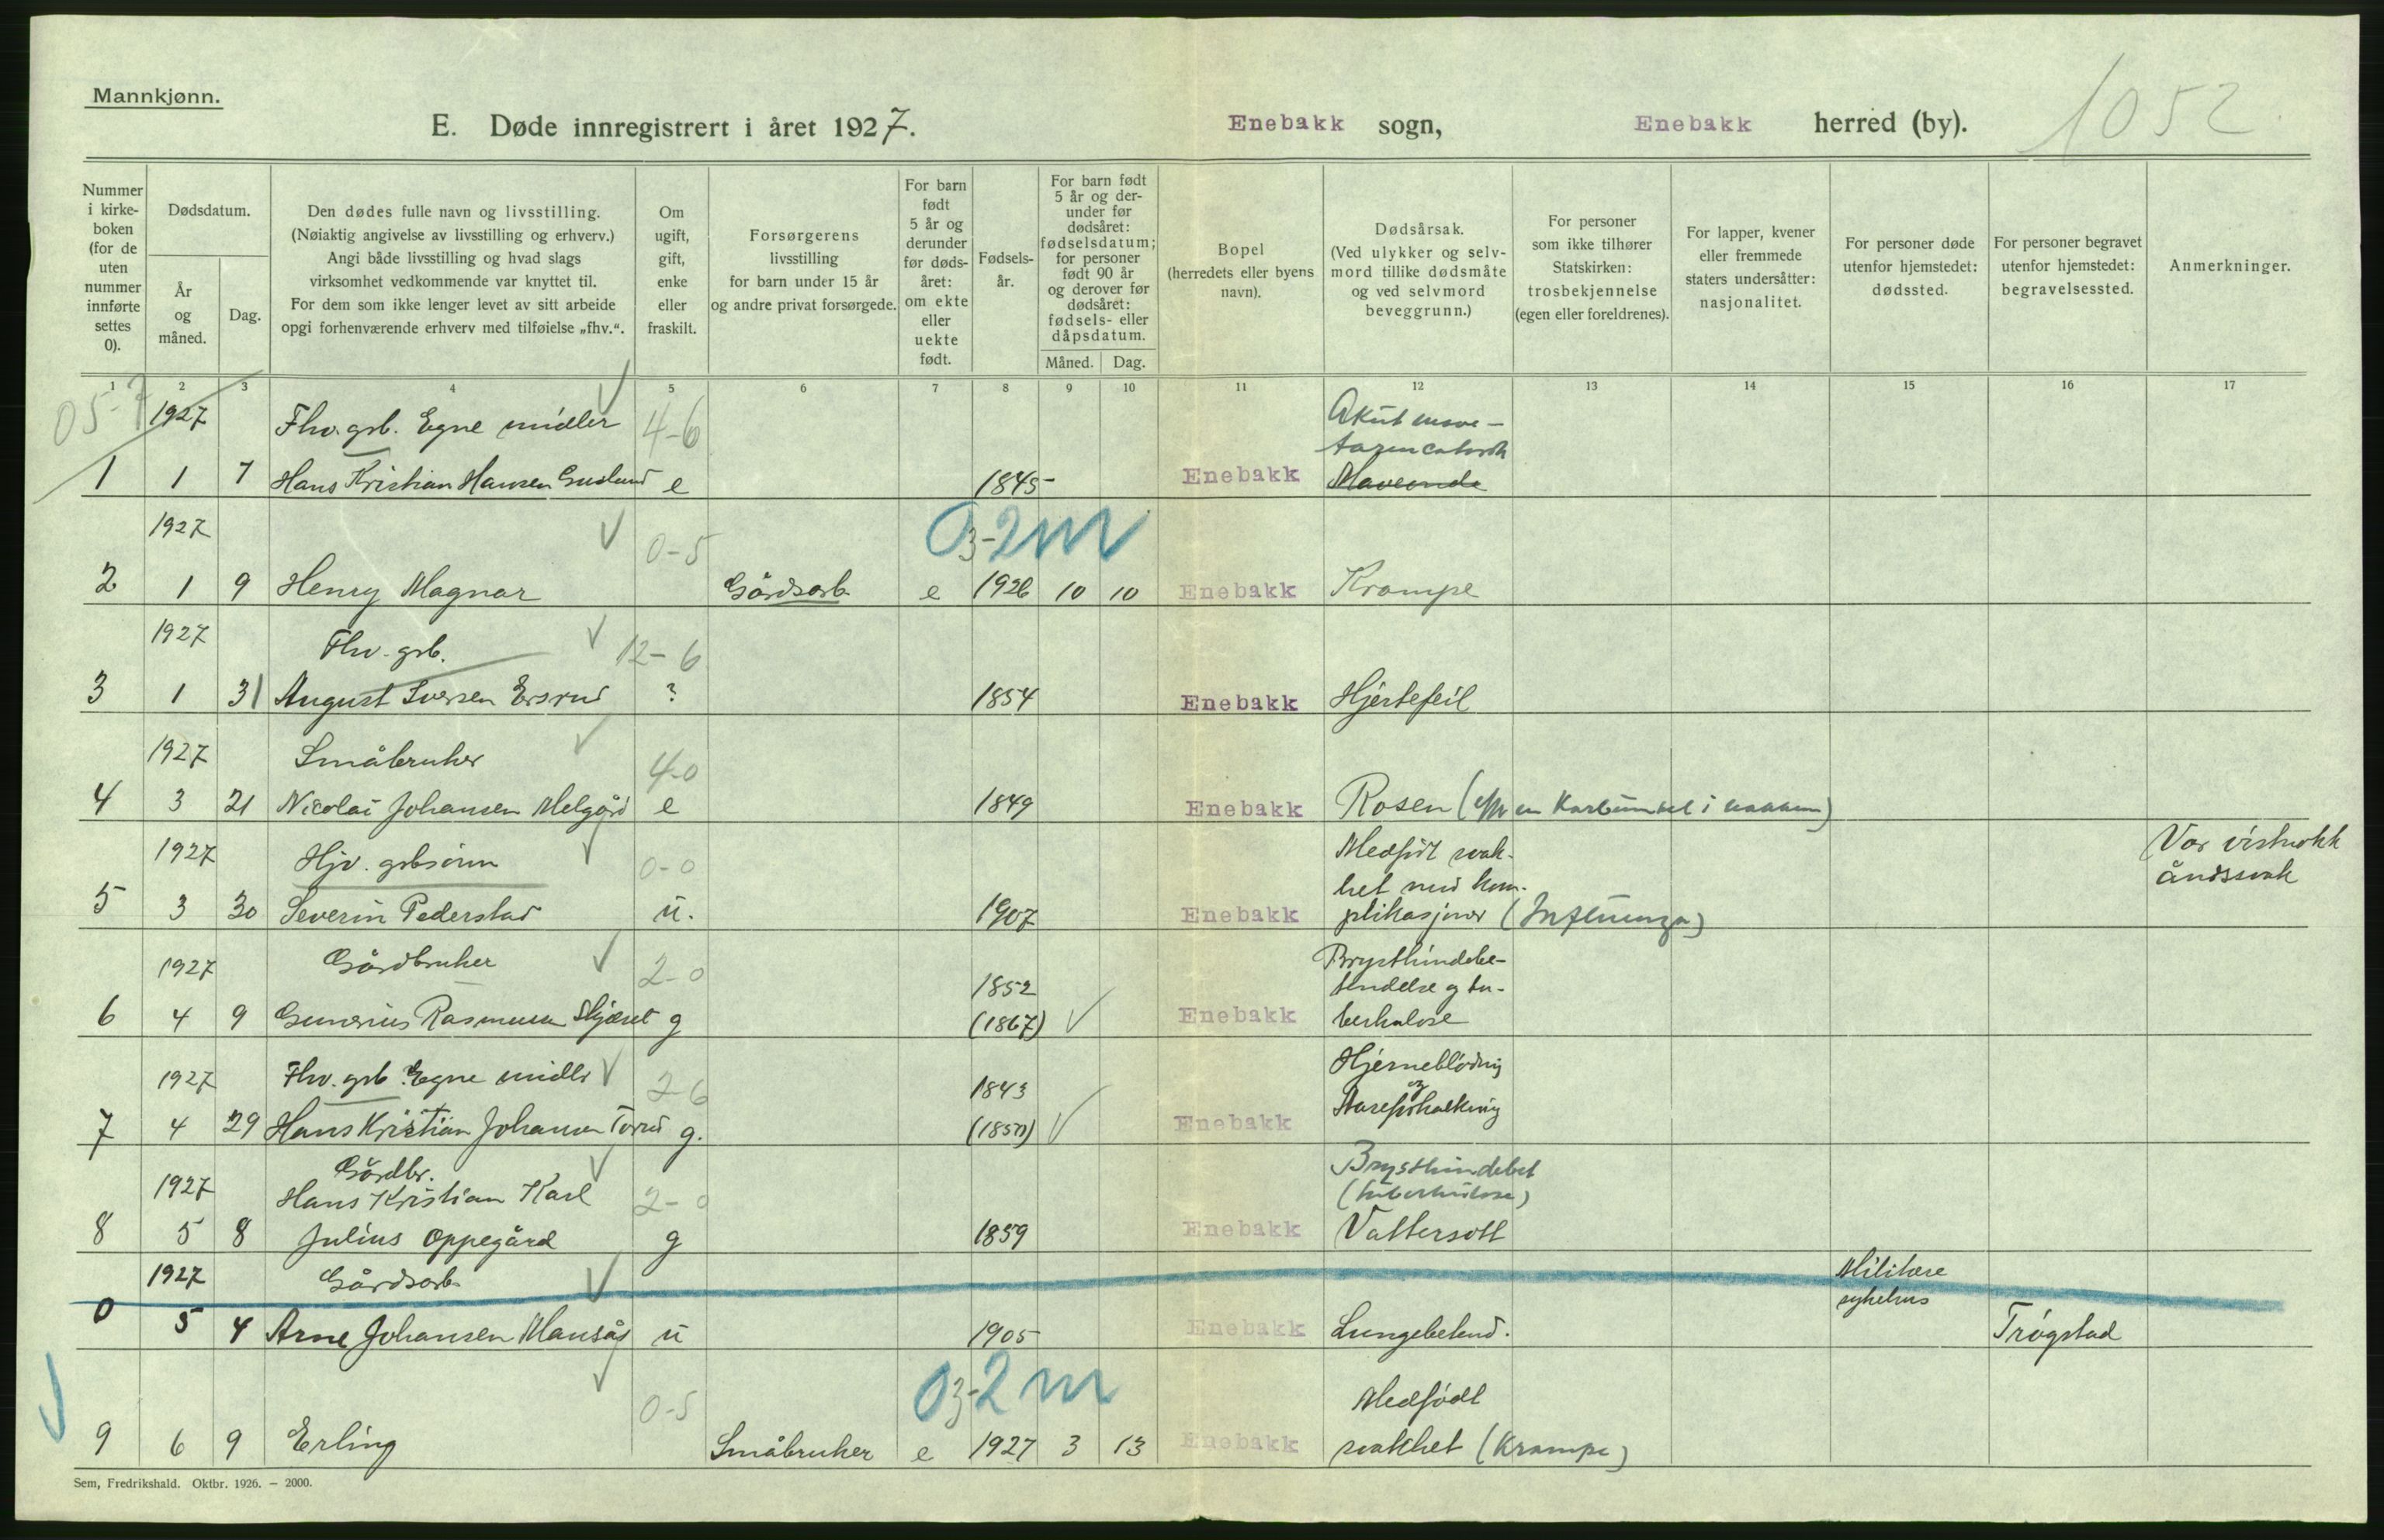 Mannkjønn.
E. Døde innregistrert i året 1927.
Enebakk sogn,
Enebakk herred (by).
1052
Nummer i kirkeboken (for de uten nummer innførte settes 0).
Dødsdatum.
År og måned.
Dag.
Den dødes fulle navn og livsstilling.
(Nøiaktig angivelse av livsstilling og erhverv.)
Angi både livsstilling og hvad slags
virksomhet vedkommende var knyttet til.
For dem som ikke lenger levet av sitt arbeide
opgi forhenværende erhverv med tilføielse „fhv.“.
Om ugift, gift, enke eller fraskilt.
Forsørgerens
livsstilling
for barn under 15 år
og andre privat forsørgede.
For barn født 5 år og derunder før dødsåret: om ekte eller uekte født.
Fødselsår.
For barn født 5 år og derunder før dødsåret: fødselsdatum; for personer født 90 år og derover før dødsåret: fødsels- eller dåpsdatum.
Måned.
Dag.
Bopel
(herredets eller byens
navn).
Dødsårsak.
(Ved ulykker og selvmord tillike dødsmåte
og ved selvmord
beveggrunn.)
For personer
som ikke tilhører
Statskirken:
trosbekjennelse
(egen eller foreldrenes).
For lapper, kvener
eller fremmede
staters undersåtter:
nasjonalitet.
For personer døde
utenfor hjemstedet:
dødssted.
For personer begravet
utenfor hjemstedet:
begravelsessted.
Anmerkninger.
1 2 3 4 5 6 7 8 9 10 11 12 13 14 15 16 17
05-7
1927 Fhv. grb. Egne midler 4-6 Akut mave-
tarmcatarrh
1 1 7 Hans Kristian Hansen e 1845 Enebakk Maveonde
1927 0-5 03-2 m
2 1 9 Henry Magnar Gårdsarb. e 1926 10 10 Enebakk Krampe
1927 Fhv. grb. 12-6
3 1 31 August Iversen Ersrud ? 1854 Enebakk Hjertefeil
1927 Småbruker 4-0
4 3 21 Nicolai Johansen Melgård e 1849 Enebakk Rosen (eft en Karbunkel i nakken)
1927 Hjv. grbsønn 0-0 Medfødt svak-
het med kom-
5 3 30 Severin Pederstad u. 1907 Enebakk plikasjoner (Influenza)
Var vistnokk
åndssvak
1927 Gårdbruker 2-0 1852 Brysthindebe-
tendelse og tu-
6 4 9 Gunerius Rasmussen Skjæret g (1867) Enebakk berkulose
1927 Fhv. grb. Egne midler 2 6 1843 Hjerneblødning
og
7 4 29 Hans Kristian Johansen Torud g. (1850) Enebakk Åreforkalkning
Gårdbr. Brysthindebet
1927 Hans Kristian Karl 2-0 (tuberkulose)
8 5 8 Julius Oppegård g 1859 Enebakk Vattersott
1927 Gårdsarb. Militære
sykehus
0 5 4 Arne Johansen Mansås u 1905 Enebakk Lungebetend. Trøgstad
0-5 03-2 m Medfødt
9 6 9 Erling Småbruker e 1927 3 13 Enebakk svakhet (Krampe)
Sem, Fredrikshald. Oktbr. 1926. – 2000.